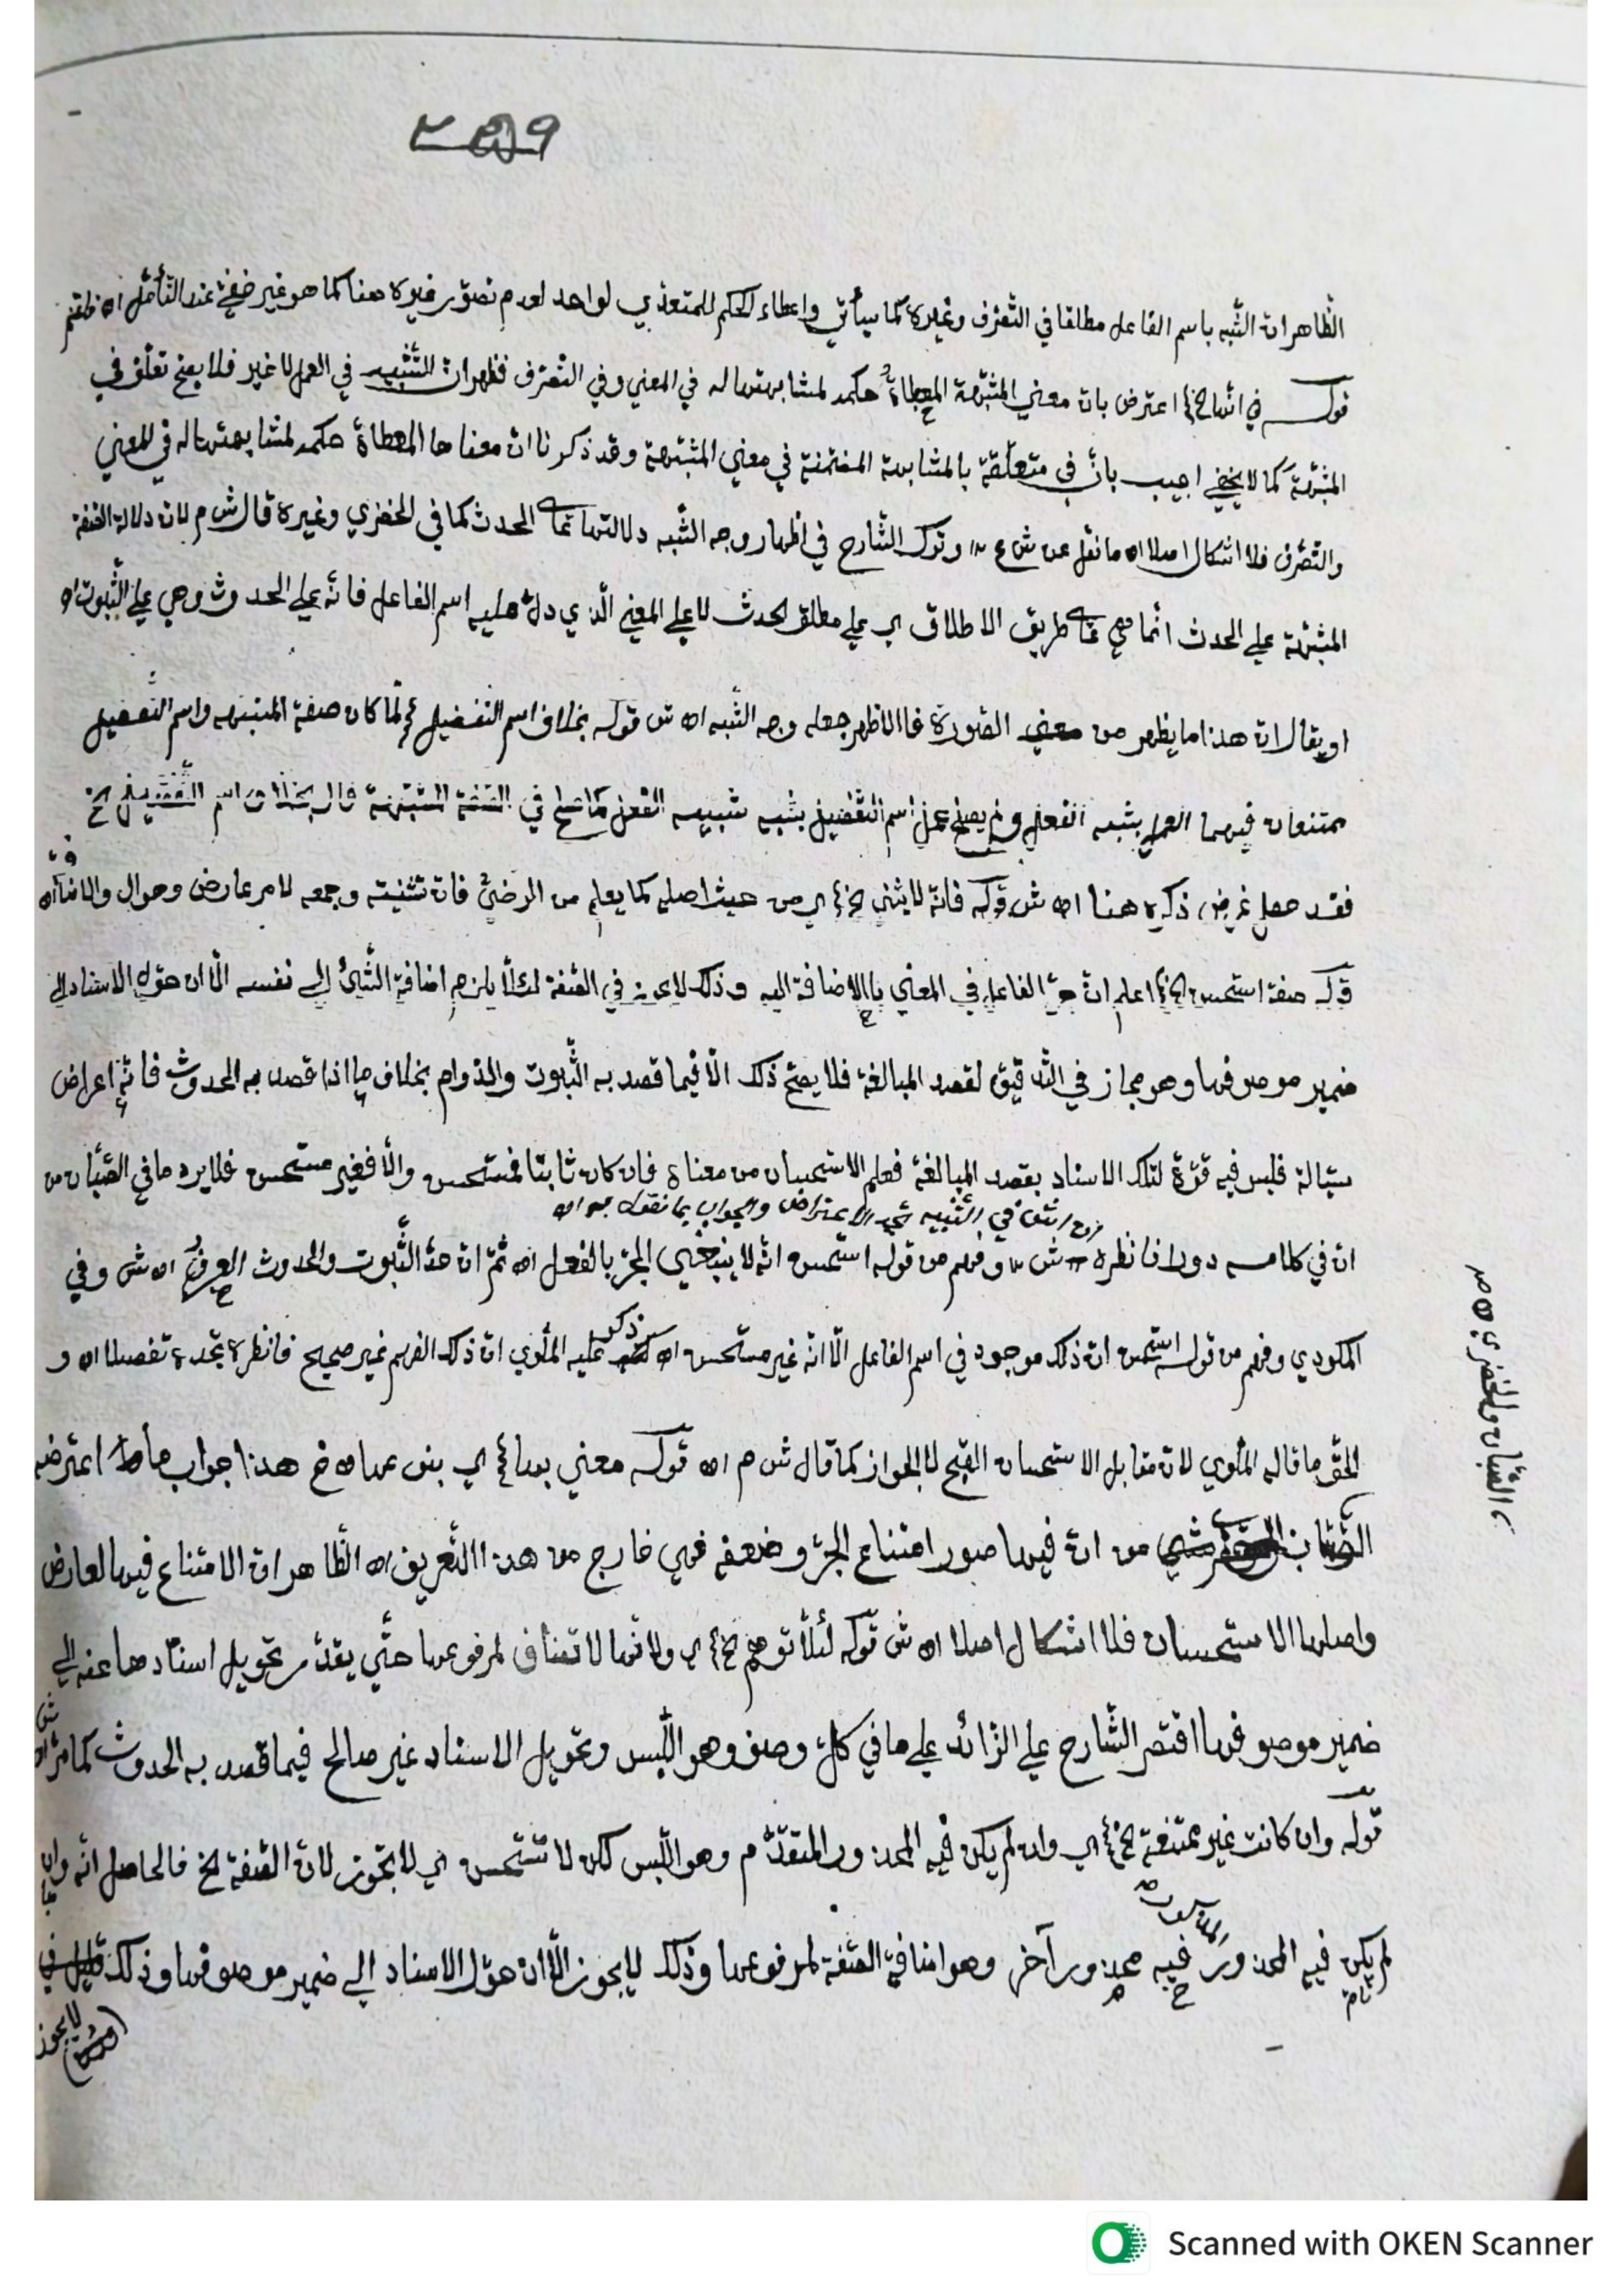 ٢٥٩
الظّاهر انّ الشّبه باسم الفاعل مطلقا في التّصرّف وغيره كما سيأتي واعطاء الحكم للمتعدّي لواحد لعدم تصوّر غيره هنا كما هو غير خفيّ عند التّأمّل اه
قوله في انّها الخ اعترض بانّ معنى المشبّهة المعطاة حكمه لمشابهتها له في المعنى وفي التصرّف فظهر انّ التّشبيه في العمل لا غير فلا يصحّ تعلّق في
المشبّهة كما لا يخفى اجيب بانّ في متعلّقة بالمشابهة المضمّنة في معنى المشبّهة وقد ذكرنا انّ معناها المعطاة حكمه لمشابهتها له في المعنى
والتّصرّف فلا اشكال اصلا اه ما نقل عن ش وترك الشّارح في اظهار وجه الشّبه دلالتها على الحدث كما في الخضري وغيره قال ش م لانّ دلالة الصّفة
المشبّهة على الحدث انّما هي على طريق الاطلاق اي على مطلق الحدث لا على المعنى الّذي دلّ عليه اسم الفاعل فانّه على الحدوث وهي على الثّبوت اه
او يقال انّ هذا ما يظهر من الصّورة فالاظهر جعله وجه الشّبه اه ش قوله بخلاف اسم التّفضيل لمّا كان صفة المشبّهة واسم التّفضيل
ممتنعان فيهما العمل بشبه الفعل ولم يصلح عمل اسم التّفضيل بشبه شبيه الفعل كما صلح في الصّفة المشبّهة قال بخلاف اسم التّفضيل الخ
فقد حصل غرض ذكره هنا اه ش قوله فانّه لا يثنّى الخ اي من حيث اصله كما يعلم من الرّضيّ فانّ تثنيته وجمعه لامر عارض وهو ال والاضافة اه
قوله صفة استحسن الخ اعلم انّ جرّ الفاعل في المعنى بالاضافة اليه وذلك لا يجوز في الصّفة لئلّا يلزم اضافة الشّيئ إلى نفسه الّا ان حوّل الاسناد إلى
ضمير موصوفها وهو مجاز في التّدقيق لقصد المبالغة فلا يصحّ ذلك الّا فيما قصد به الثّبوت والدّوام بخلاف ما اذا قصد به الحدوث فانّه اعراض
سيّالة فليس فيه قوّة لتلك الاسناد بقصد المبالغة فعلم الاستحسان من معناه فان كان ثابتا فمستحسن والّا فغير مستحسن فلا يرد ما في الصّبّان من
في التّنبيه تجد الاعتراض والجواب بما نقول به اه
انّ في كلامه دورا فانظره ش وفهم من قوله استحسن انّه لا ينبغي الجرّ بالفعل اه ثمّ انّ هذا الثّبوت والحدوث العرفيّ اه ش وفي
المكودي وفهم من قوله استحسن انّ ذلك موجود في اسم الفاعل الّا انّه غير مستحسن اه سيذكر عليه الملّوي انّ ذلك الفهم غير صحيح فانظره تجده تفصيلا اه و
الحقّ ما قاله الملّوي لانّ مقابل الاستحسان القبح لا الجواز كما قال ش م اه قوله معنى بها اي بنى عملا الخ هذا جواب ما اعترضه
الصّبّان من انّ فيها صور امتناع الجرّ وضعفه فهي خارج من هذا التّعريف اه الظّاهر انّ الامتناع فيها لعارض
واصلها الاستحسان فلا اشكال اصلا اه ش قوله لئلّا توهم الخ اي ولانّها لا تضاف لمرفوعها حتّى يقدّر تحويل اسنادها عنه إلى
ضمير موصوفها اقتصر الشّارح على الزّائد على ما في كلّ وصف وهو اللّبس وتحويل الاسناد غير صالح فيما قصد به الحدوث كما مرّ اه ش
قوله وان كانت غير ممتنعة الخ اي وان لم يكن فيه المحذور المتقدّم وهو اللّبس لكن لا تستحسن اي لا تجوز لانّ الصّفة الخ فالحاصل انّه وان
لم يكن فيه المحذور فيه محذور آخر وهو اضافة الصّفة لمرفوعها وذلك لا يجوز الّا ان حوّل الاسناد إلى ضمير موصوفها وذلك
لا يجوز
الصّبّان والخضري اه
Scanned with OKEN Scanner